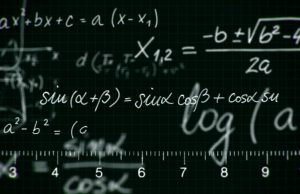 ax² + bx + c = a (x - x₁)
x₁,₂ = -b ± √b² - 4
2a
sin(α+β) = sinα cosβ + cosα sin
a² - b² = (a
log (a
sinα
cosα
3 4 5 6 7 8 9